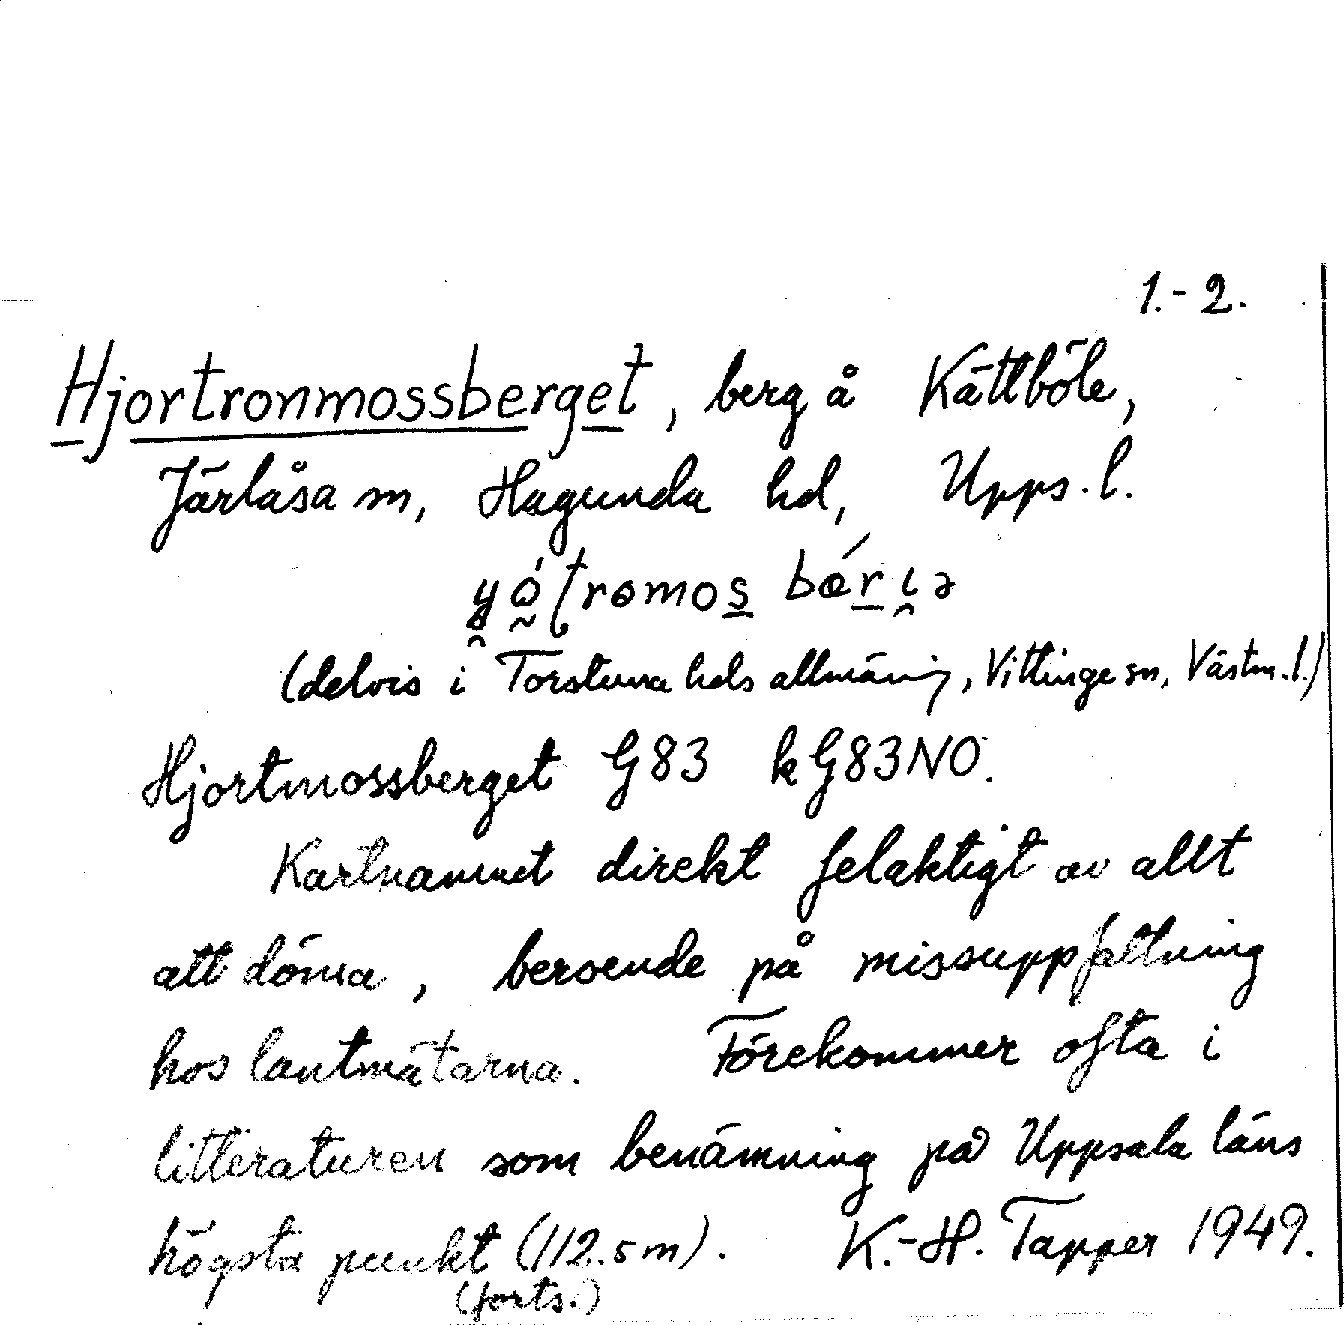 1.-2.
Hjortronmossberget, berg å Kättböle,
Järlåsa sn, Hagunda hd, Upps. l.
(delvis i Torstuna hds allmäning, Vittinge sn, Västm. l.)
Hjortmossberget G83 kG83NO.
Kartnamnet direkt felaktigt av allt
att döma, beroende på missuppfattning
hos lantmätarna. Förekommer ofta i
litteraturen som benämning på Uppsala läns
högsta punkt (112.5 m). K.-H. Tapper 1949.
(forts.)